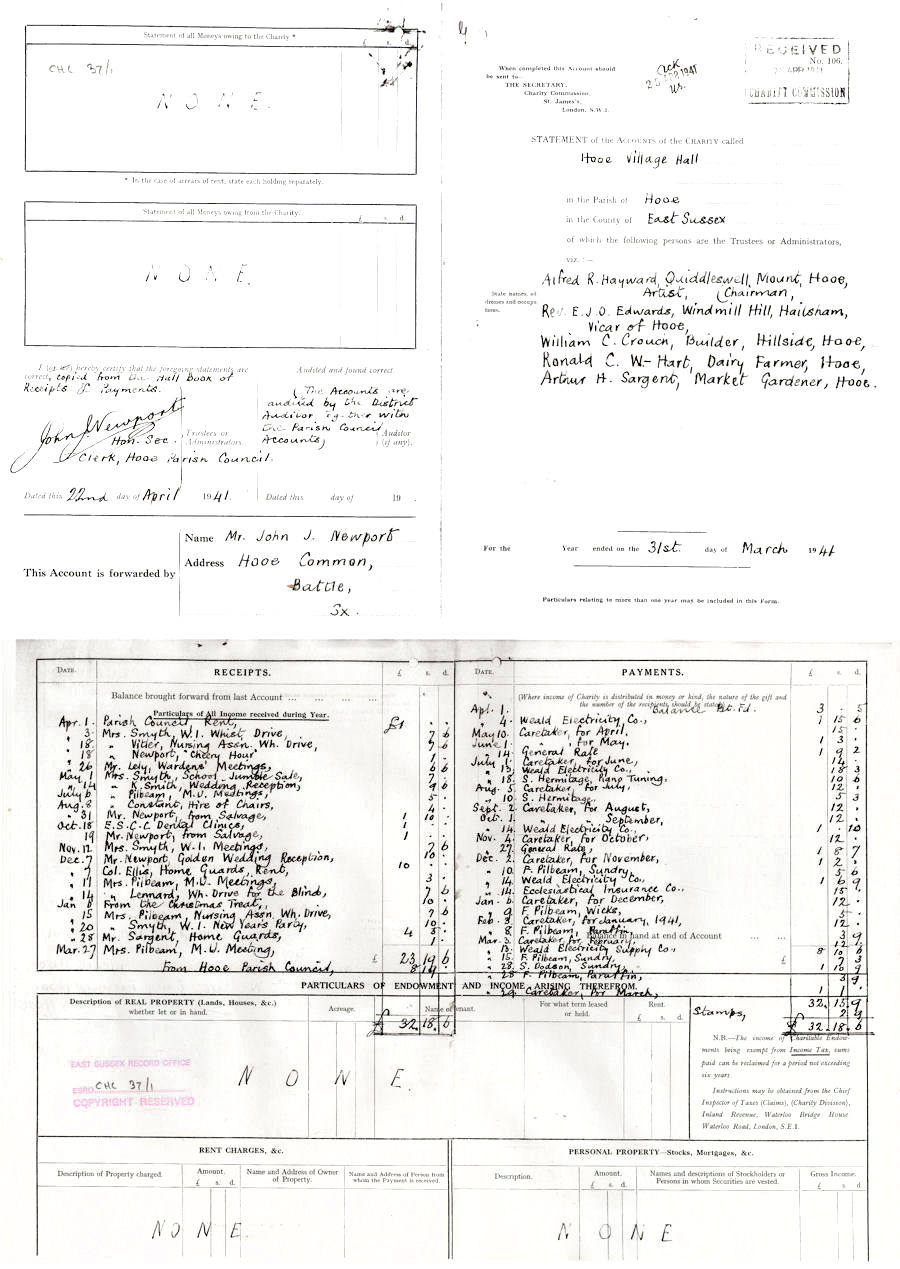 Statement of all Moneys owing to the Charity *
£ s. d.
CHC 37/1
NONE.
* In the case of arrears of rent, state each holding separately.
Statement of all Moneys owing from the Charity.
£ s. d.
NONE.
hereby certify that the foregoing statements are
correct, copied from the Hall Book of
Receipts & Payments.
John J. Newport
Hon. Sec.
Trustees or
Administrators.
Clerk, Hooe Parish Council.
Audited and found correct
(The Accounts are
audited by the District
Auditor together with
the Parish Council
Accounts)
Auditor
(if any).
Dated this 22nd day of April 1941.
Dated this day of 19 .
This Account is forwarded by
Name Mr. John J. Newport
Address Hooe Common,
Battle,
Sx.
When completed this Account should
be sent to—
THE SECRETARY,
Charity Commission,
St. James's,
London, S.W.1.
Ack
25 APR 1941
RECEIVED
No. 106.
APR 1941
CHARITY COMMISSION
STATEMENT of the ACCOUNTS of the CHARITY called
Hooe Village Hall
in the Parish of Hooe
in the County of East Sussex
of which the following persons are the Trustees or Administrators,
viz. :—
State names, ad
dresses and occupa
tions.
Alfred R. Hayward, Quiddleswell, Mount, Hooe,
Artist, (Chairman,
Rev. E.J.O. Edwards, Windmill Hill, Hailsham,
Vicar of Hooe,
William C. Crouch, Builder, Hillside, Hooe,
Ronald C. W-Hart, Dairy Farmer, Hooe,
Arthur H. Sargent, Market Gardener, Hooe.
For the Year ended on the 31st. day of March 1941
Particulars relating to more than one year may be included in this Form.
DATE. RECEIPTS. £ s. d.
Balance brought forward from last Account ... ... ...
Particulars of All Income received during Year.
Apr. 1. Parish Council Rent, £1 . .
3. Mrs. Smyth, W.I. Whist Drive, 7 6
18. " Vitler, Nursing Assn. Wh. Drive, 7 6
18 " Newport, "Cheery Hour"
26 Mr. Lely, Wardens' Meetings,
May 1 Mrs. Smyth, School Jumble Sale,
14 " K. Smith, Wedding Reception,
July 6 " Pilbeam, M.U. Meetings,
Aug. 8 " Constant, Hire of Chairs,
31 Mr. Newport, from Salvage, 1 10 .
Oct. 18 E.S.C.C Dental Clinics, 1
19 Mr. Newport, from Salvage, 1
Nov. 12 Mrs. Smyth, W.I. Meetings, 7 6
Dec. 7 Mr. Newport, Golden Wedding Reception, 10 .
7 Col. Ellis, Home Guards, Rent, 10
11 Mrs. Pilbeam, M.U. Meetings, 3 .
14 " Lennard, Wh. Drive for the Blind, 7 6
Jan 6 From the Christmas Treat, 10 .
15 Mrs. Pilbeam, Nursing Assn. Wh. Drive, 7 6
20 " Smyth, W.I. New Years Party, 10 .
28 Mr. Sargent, Home Guards, 4 8
Mar. 27 Mrs. Pilbeam, M.U. Meeting, 1
£ 23 19 6
From Hooe Parish Council, 8 19
£ 32. 18. 6
DATE. PAYMENTS. £ s. d.
(Where income of Charity is distributed in money or kind, the nature of the gift and
the number of the recipients should be stated.)
Apl. 1. Balance Pt. Fd. 3 . 5
4. Weald Electricity Co., 1 15 6
May 10. Caretaker, for April, 15 .
June 1. " for May, 1 3
14 General Rate 1 9 2
July 1 Caretaker, for June, 14 .
13, Weald Electricity Co., 18 3
18. S. Hermitage, Piano Tuning, 10 6
Aug. 5. Caretaker, for July, 12 .
10 S. Hermitage, 5 .
Sept. 2 Caretaker, for August, 12 .
Oct. 1. " September, 12 .
14. Weald Electricity Co., 1 . 10
Nov. 4 Caretaker, for October, 12 .
27 General Rate, 1 8 7
Dec. 2 Caretaker, for November, 1 2
10. F. Pilbeam, Sundry, 5 6
14 Weald Electricity Co., 1 6 9
14. Ecclesiastical Insurance Co., 15 .
Jan. 6. Caretaker, for December, 12 .
9 F. Pilbeam, Wicks,
Feb. 3 Caretaker, for January, 1941, 12
8 F. Pilbeam, Paraffin 3 9
Balance in hand at end of Account ... ...
Mar. 3 Caretaker, for February, 12
13. Weald Electricity Supply Co., 8 10 6
15. F. Pilbeam, Sundry, 7 3
28. S. Dodson, Sundry, 1 10 9
28 F. Pilbeam, Paraffin, 3 9
29 Caretaker, for March, 1 1
32. 15. 9
Stamps, 2 9
£ 32. 18. 6
PARTICULARS OF ENDOWMENT AND INCOME ARISING THEREFROM.
Description of REAL PROPERTY (Lands, Houses, &c.)
whether let or in hand.
Acreage.
Name of Tenant.
For what term leased
or held.
Rent.
£ s. d.
NONE.
EAST SUSSEX RECORD OFFICE
ESRO CHC 37/1
COPYRIGHT RESERVED
N.B.—The income of Charitable Endow-
ments being exempt from Income Tax, sums
paid can be reclaimed for a period not exceeding
six years.
Instructions may be obtained from the Chief
Inspector of Taxes (Claims), (Charity Division),
Inland Revenue, Waterloo Bridge House
Waterloo Road, London, S.E.1.
RENT CHARGES, &c.
Description of Property charged.
Amount.
£ s. d.
Name and Address of Owner
of Property.
Name and Address of Person from
whom the Payment is received.
NONE.
PERSONAL PROPERTY—Stocks, Mortgages, &c.
Description.
Amount.
£ s. d.
Names and descriptions of Stockholders or
Persons in whom Securities are vested.
Gross Income.
£ s. d.
NONE